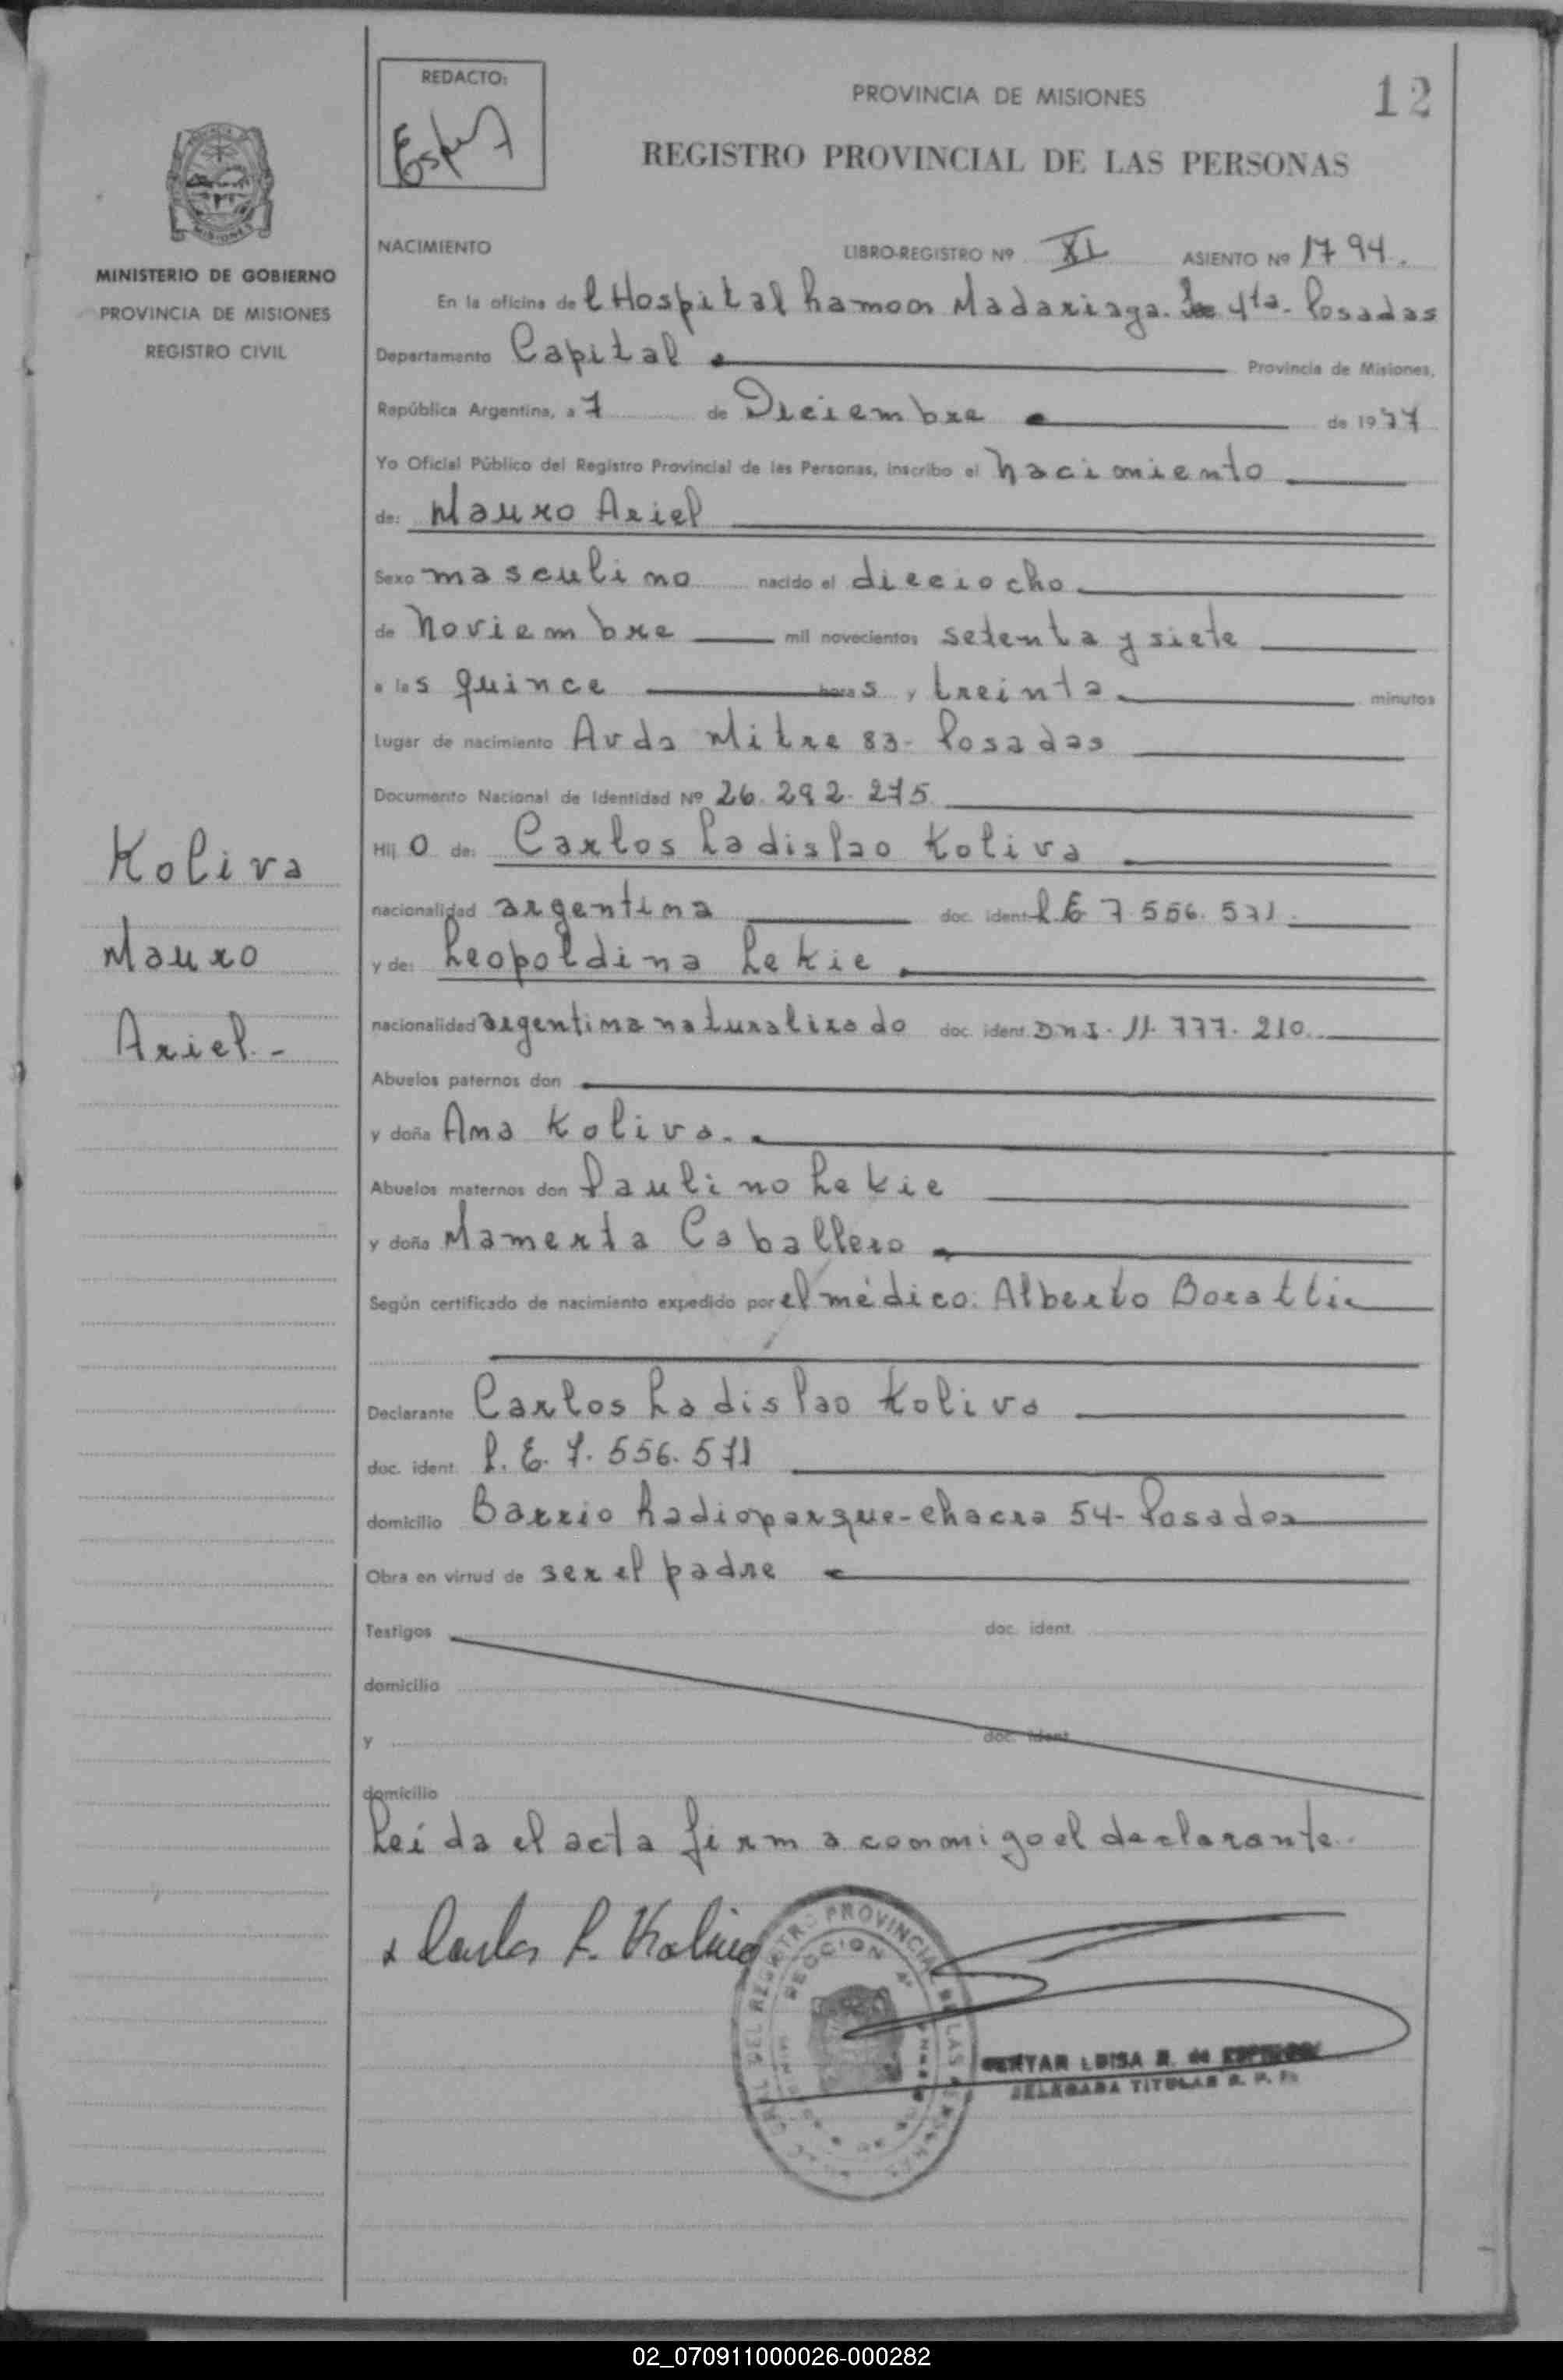 REDACTO:
PROVINCIA DE MISIONES
12
REGISTRO PROVINCIAL DE LAS PERSONAS
MISIONES
MINISTERIO DE GOBIERNO
PROVINCIA DE MISIONES
REGISTRO CIVIL
NACIMIENTO LIBRO-REGISTRO Nº XI ASIENTO Nº 1794.
En la oficina del Hospital Ramon Madariaga. 4ta- Posadas
Departamento Capital Provincia de Misiones,
República Argentina, a 7 de Diciembre de 1977
Yo Oficial Público del Registro Provincial de las Personas, inscribo el nacimiento
de: Mauro Ariel
Sexo masculino nacido el dieciocho
de Noviembre mil novecientos setenta y siete
a las quince horas y treinta minutos
Lugar de nacimiento Avda Mitre 83- Posadas
Documento Nacional de Identidad Nº 26.292.275
Hijo de: Carlos Ladislao Koliva
nacionalidad argentina doc. ident L.E 7.556.571
y de: Leopoldina Lekie
nacionalidad argentina naturalizado doc. ident. DNI. 11.777.210
Abuelos paternos don
y doña Ana Koliva.
Abuelos maternos don Paulino Lekie
y doña Mamerta Caballero
Según certificado de nacimiento expedido por el médico: Alberto
Declarante Carlos Ladislao Koliva
doc. ident. L.E. 7.556.571
domicilio Barrio Radioparque-chacra 54- Posadas
Obra en virtud de ser el padre
Testigos doc. ident.
domicilio
y doc. ident.
domicilio
Leída el acta firma conmigo el declarante.
Koliva
Mauro
Ariel.-
Carlos L. Koliva
DEL REGISTRO PROVINCIAL DE LAS PERSONAS
SECCION 4ª
LUISA
DELEGADA TITULAR R. P. P.
02_070911000026-000282